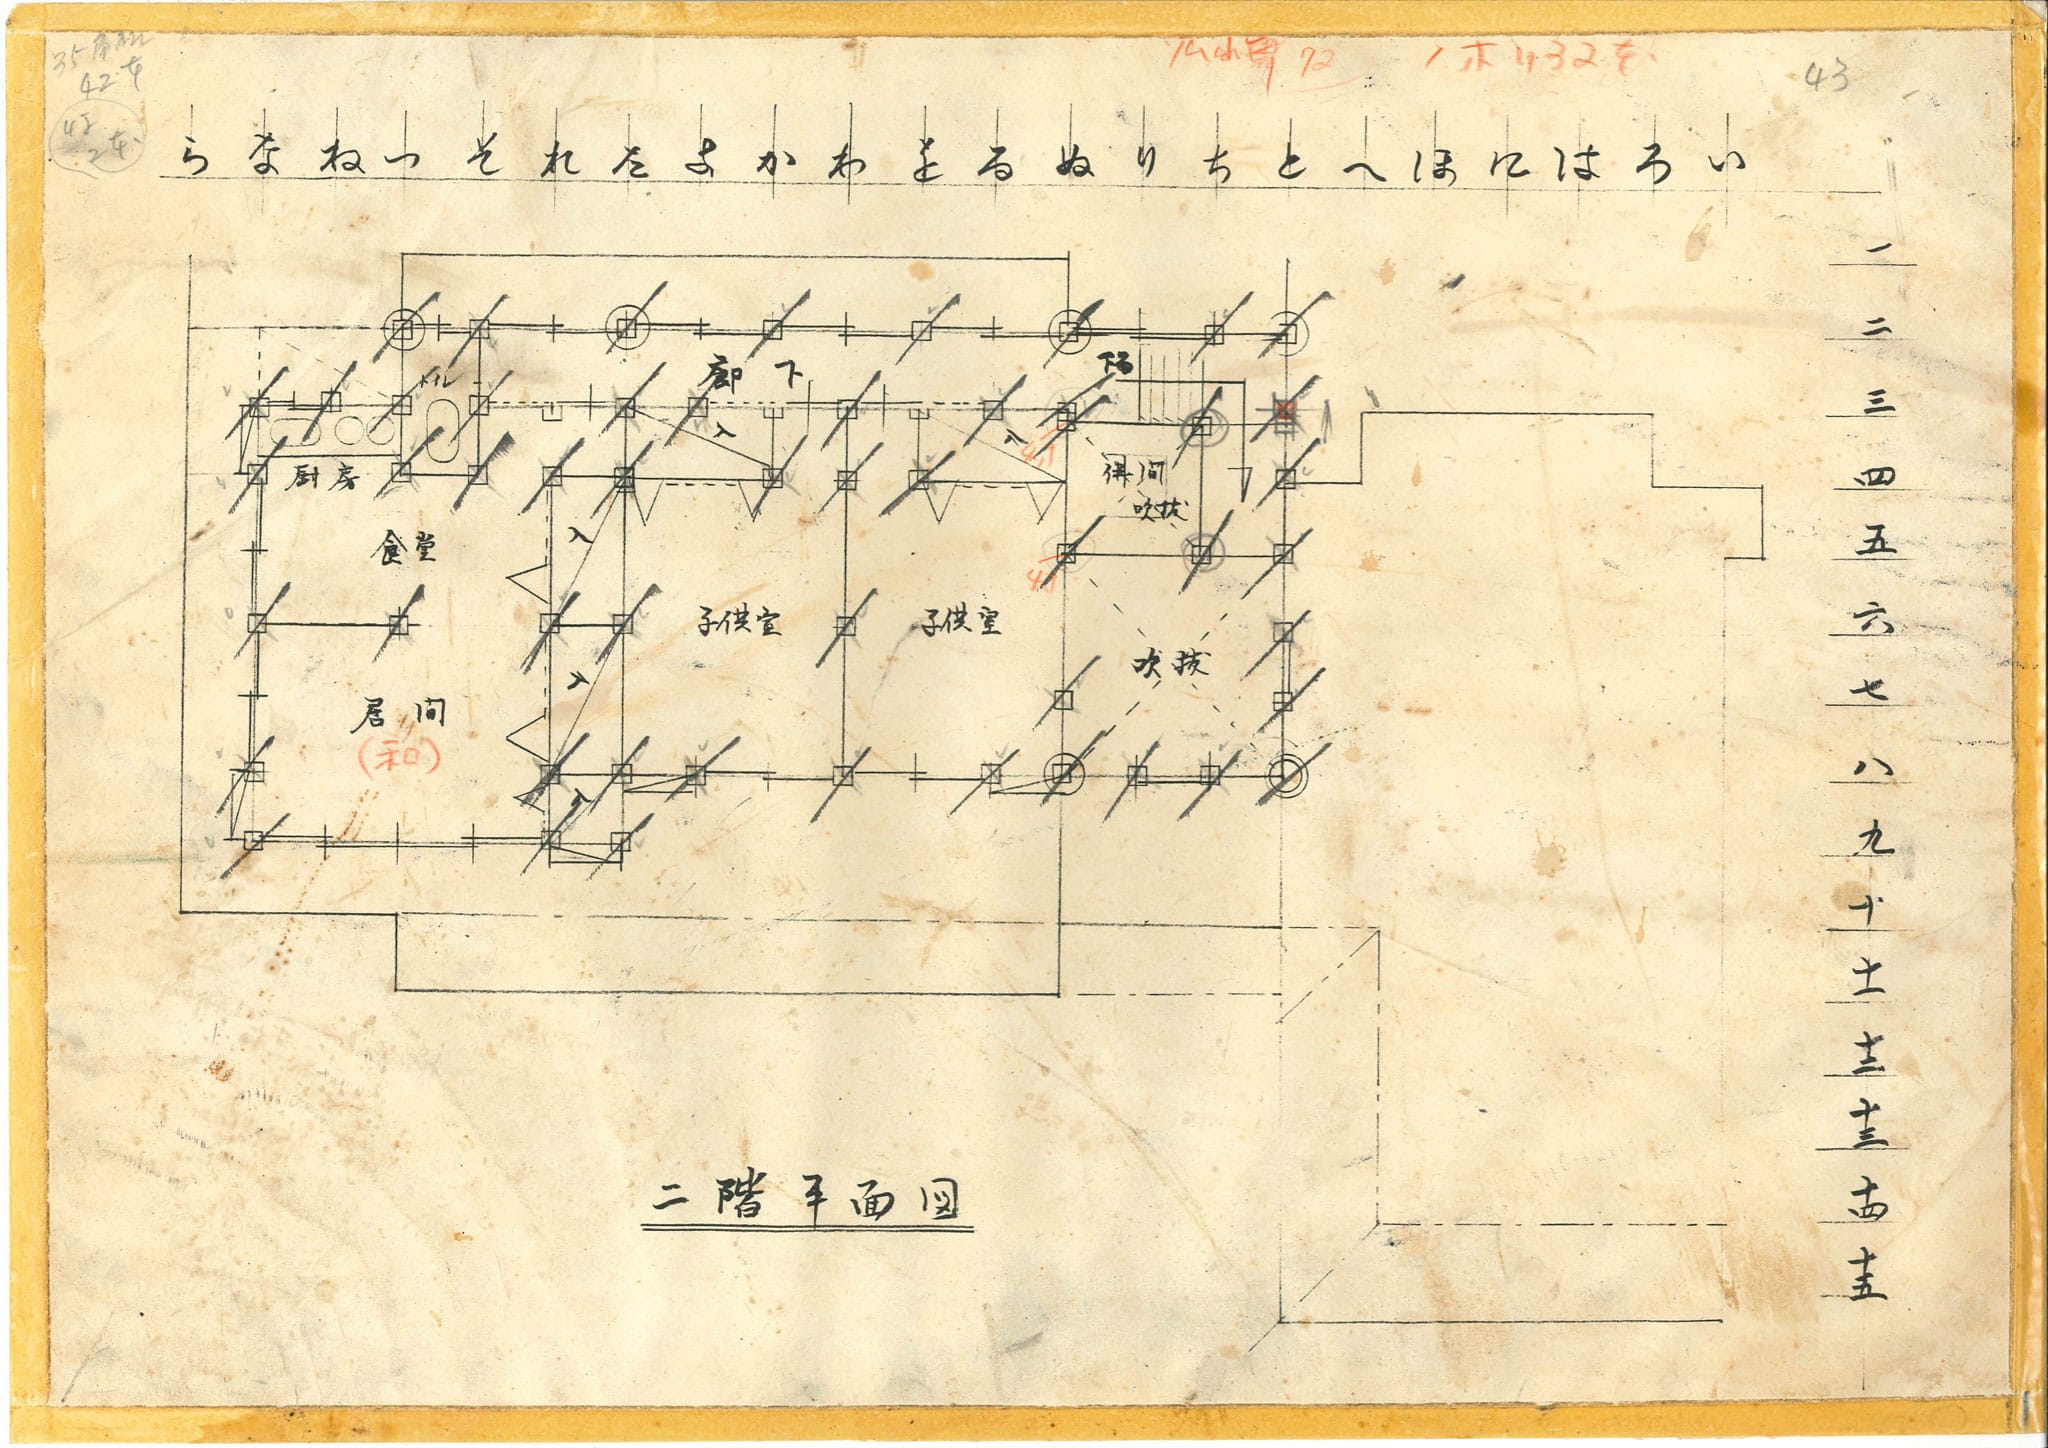 42本
43
らなねつそれたよかわをるぬりちとへほにはろい
一
二
三
四
五
六
七
八
九
十
十一
十二
十三
十四
十五
トイレ
廊下
下る
入
入
厨房
吹抜
食堂
入
子供室
子供室
吹抜
入
居間
(和)
入
二階平面図